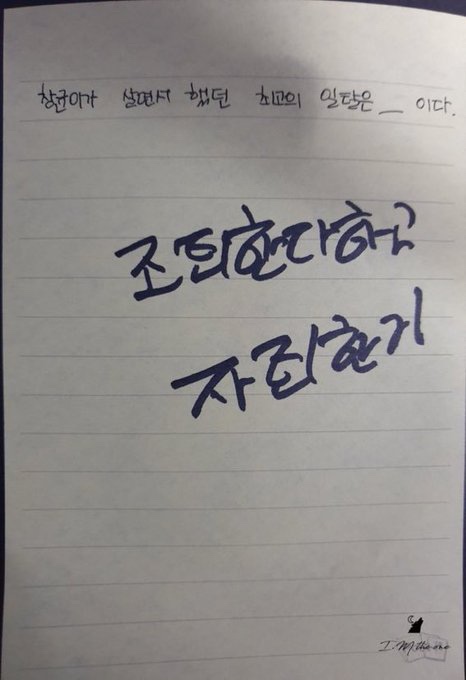 창균이가 살면서 했던 최고의 일탈은 __ 이다.
조퇴한다하고
자퇴한거
I.M.the one